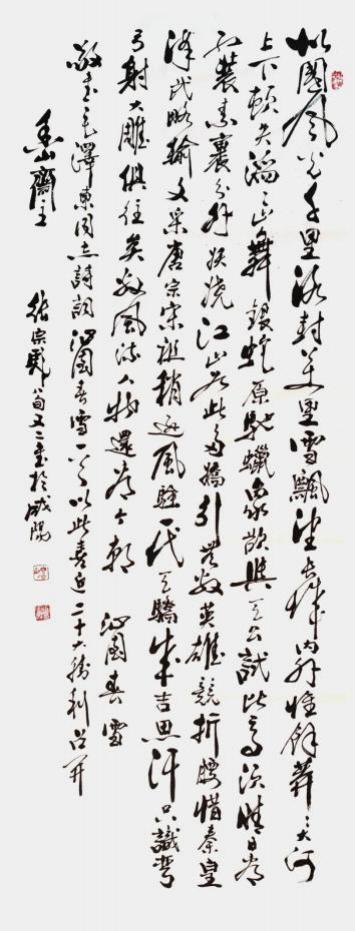 北國風光千里冰封萬里雪飄望長城內外惟餘莽々大河
上下頓失滔々山舞銀蛇原馳蠟象欲與天公試比高須晴日看
紅裝素裹分外妖嬈江山如此多嬌引無數英雄競折腰惜秦皇
漢武略輸文采唐宗宋祖稍遜風騷一代天驕成吉思汗只識彎
弓射大雕俱往矣數風流人物還看今朝 沁園春雪
敬書毛澤東同志詩詞沁園春雪一首以此喜迎二十大勝利召開
齋主 張宗 旬又二書於咸陽